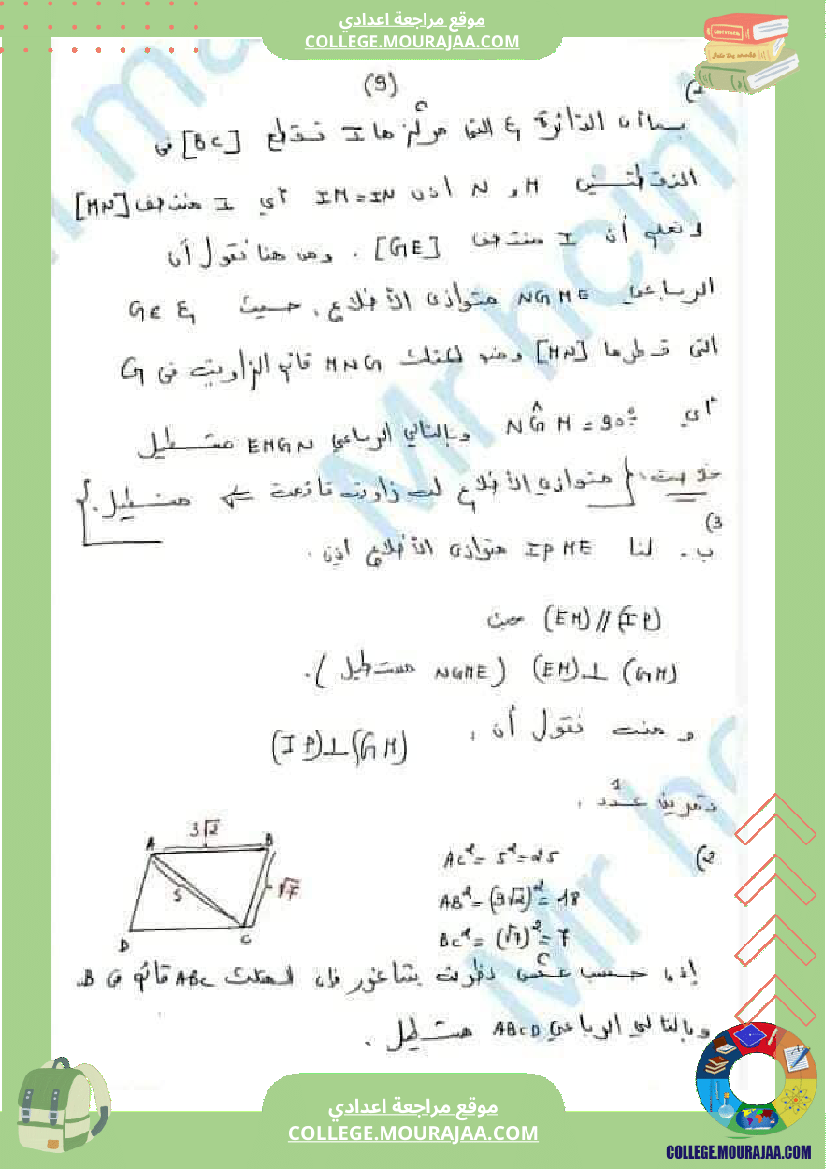 موقع مراجعة اعدادي
COLLEGE.MOURAJAA.COM
(9)
2)
بما أن الدائرة ξ التي مركزها I تقطع [BC] في
النقطتين M و N اذن IM=IN أي I منتصف [MN]
و نعلم أن I منتصف [GE] . ومن هنا نقول أن
الرباعي NGME متوازي الأضلاع . حيث G∈ξ
التي قطرها [MN] وضو المثلث MNG قائم الزاوية في G
أي NĜM=90° وبالتالي الرباعي EMGN مستطيل
متوازي الأضلاع له زاوية قائمة ⇐ مستطيل.
3)
ب- لنا IPME متوازي الأضلاع اذن .
(EM)//(IP) حيث
(EM)⊥(GM) (NGME مستطيل).
و منه نقول أن : (IP)⊥(GM)
تمرين عدد 1 :
2)
AC²= 5²=25
AB²=(3√2)²=18
BC²=(√7)²=7
A 3√2 B
5 √7
D C
إذن حسب عكس نظرية بيتاغور فإن المثلث ABC قائم في B.
وبالتالي الرباعي ABCD مستطيل .
موقع مراجعة اعدادي
COLLEGE.MOURAJAA.COM
COLLEGE.MOURAJAA.COM